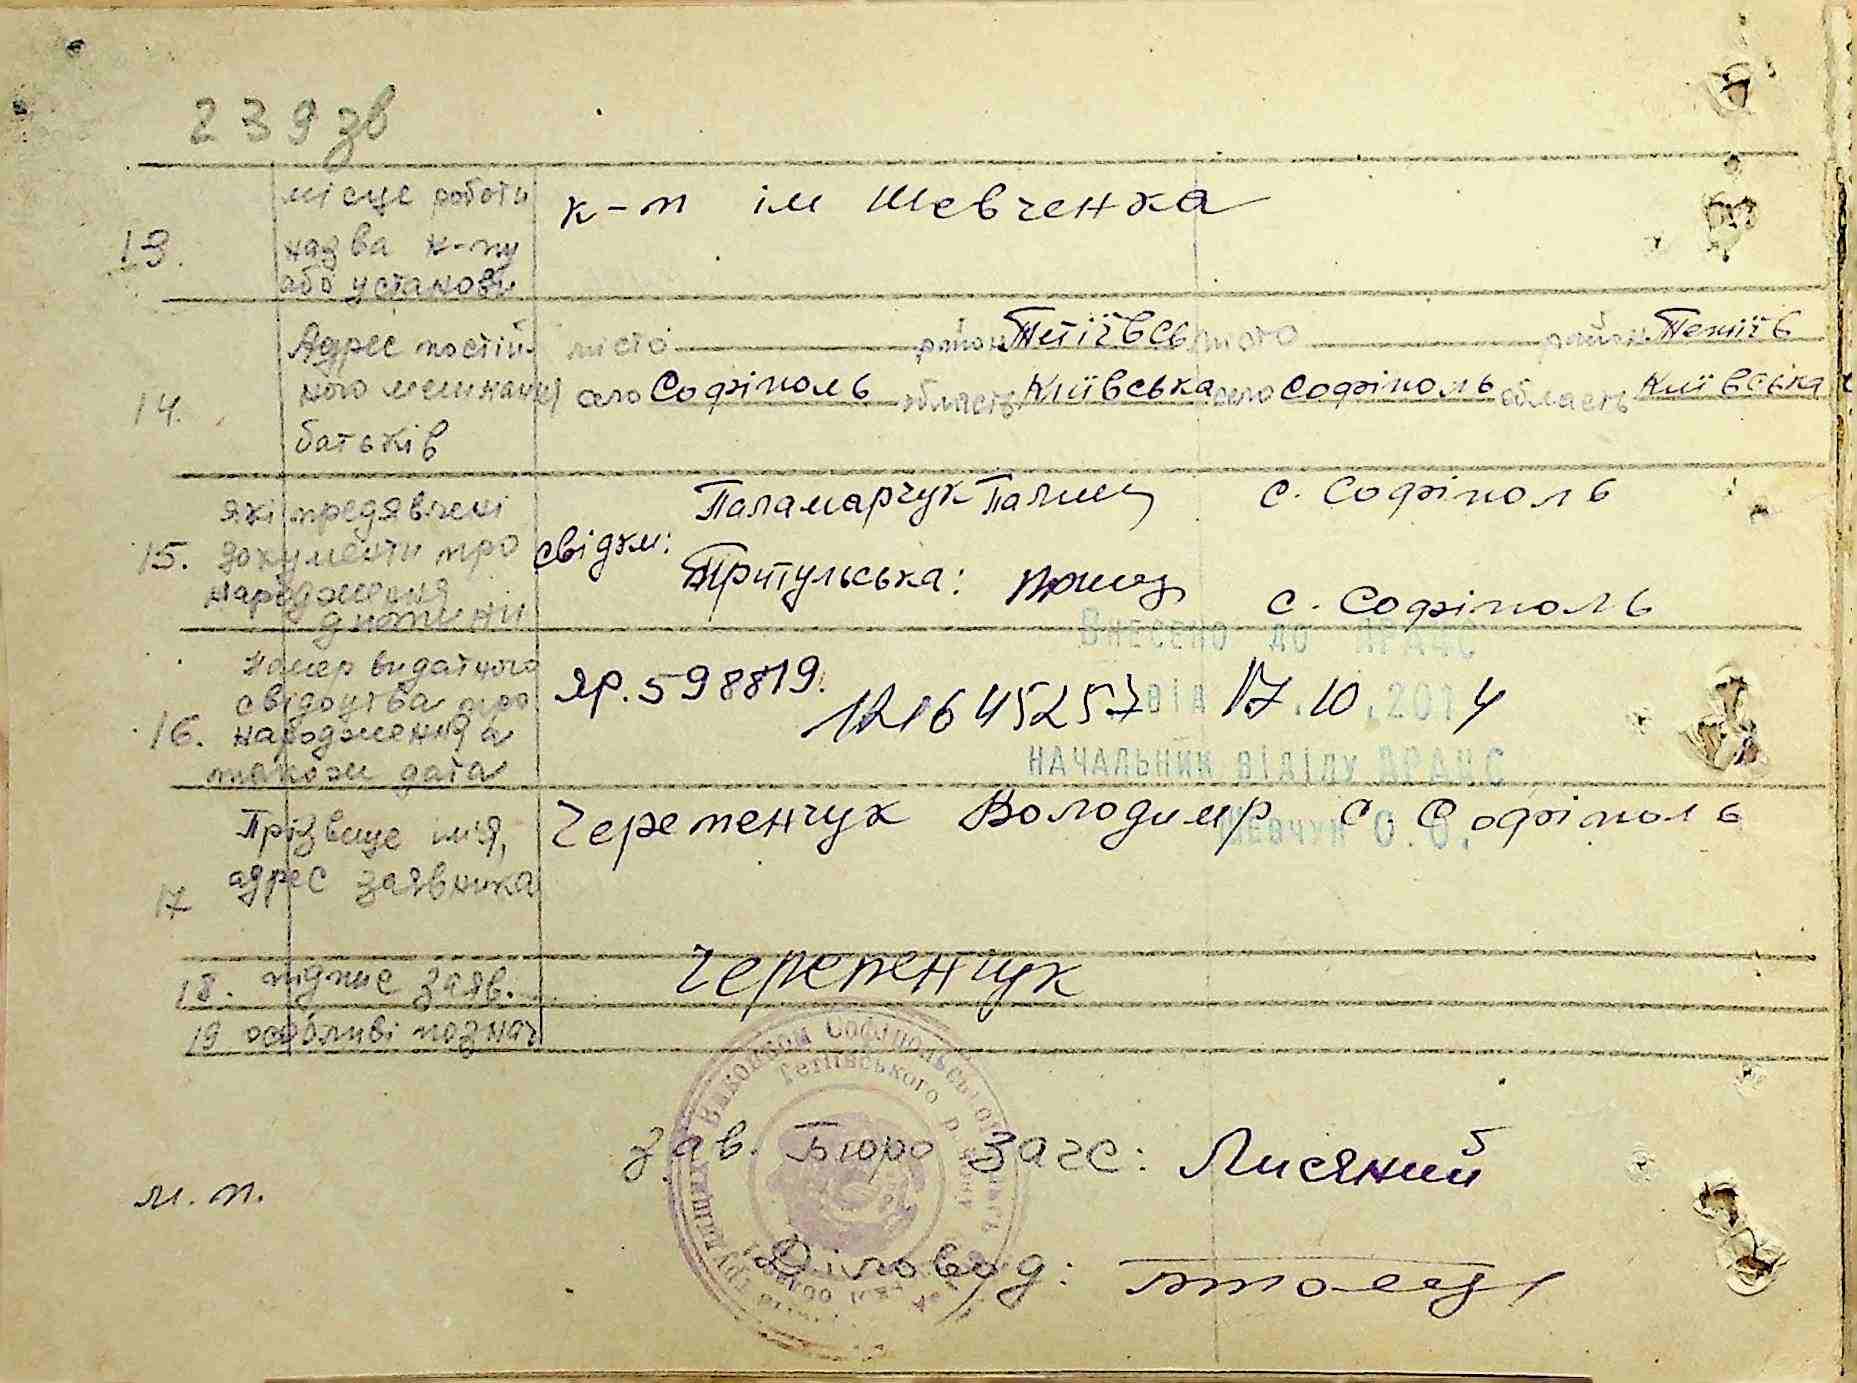 239 зв
13. місце роботи назва к-пу або установи
к-п ім Шевченка
14. Адрес постій- ного мешкання батьків
місто район Тетіївсь місто район Тетіїв
село Софіполь область Київська село Софіполь область Київська
15. які предявлені документи про народження дитини
свідки: Паламарчук с. Софіполь
Притульська: с. Софіполь
16. Номер виданого свідоцтва про народження а також дата
ЯР. 598819. 121645257
Внесено до ДРАЦС
від 17.10.2014
НАЧАЛЬНИК ВІДІЛУ ДРАЦС
Шевчук О.О.
17 Прізвище імія, адрес заявника
Черепенчук Володимир с Софіполь
18. підпис заяв.
Черепенчук
19 особливі познач
Виконком Софіпольської
Тетіївського р-ну
зав. Бюро загс: Лисяний
м. п.
Діловод: